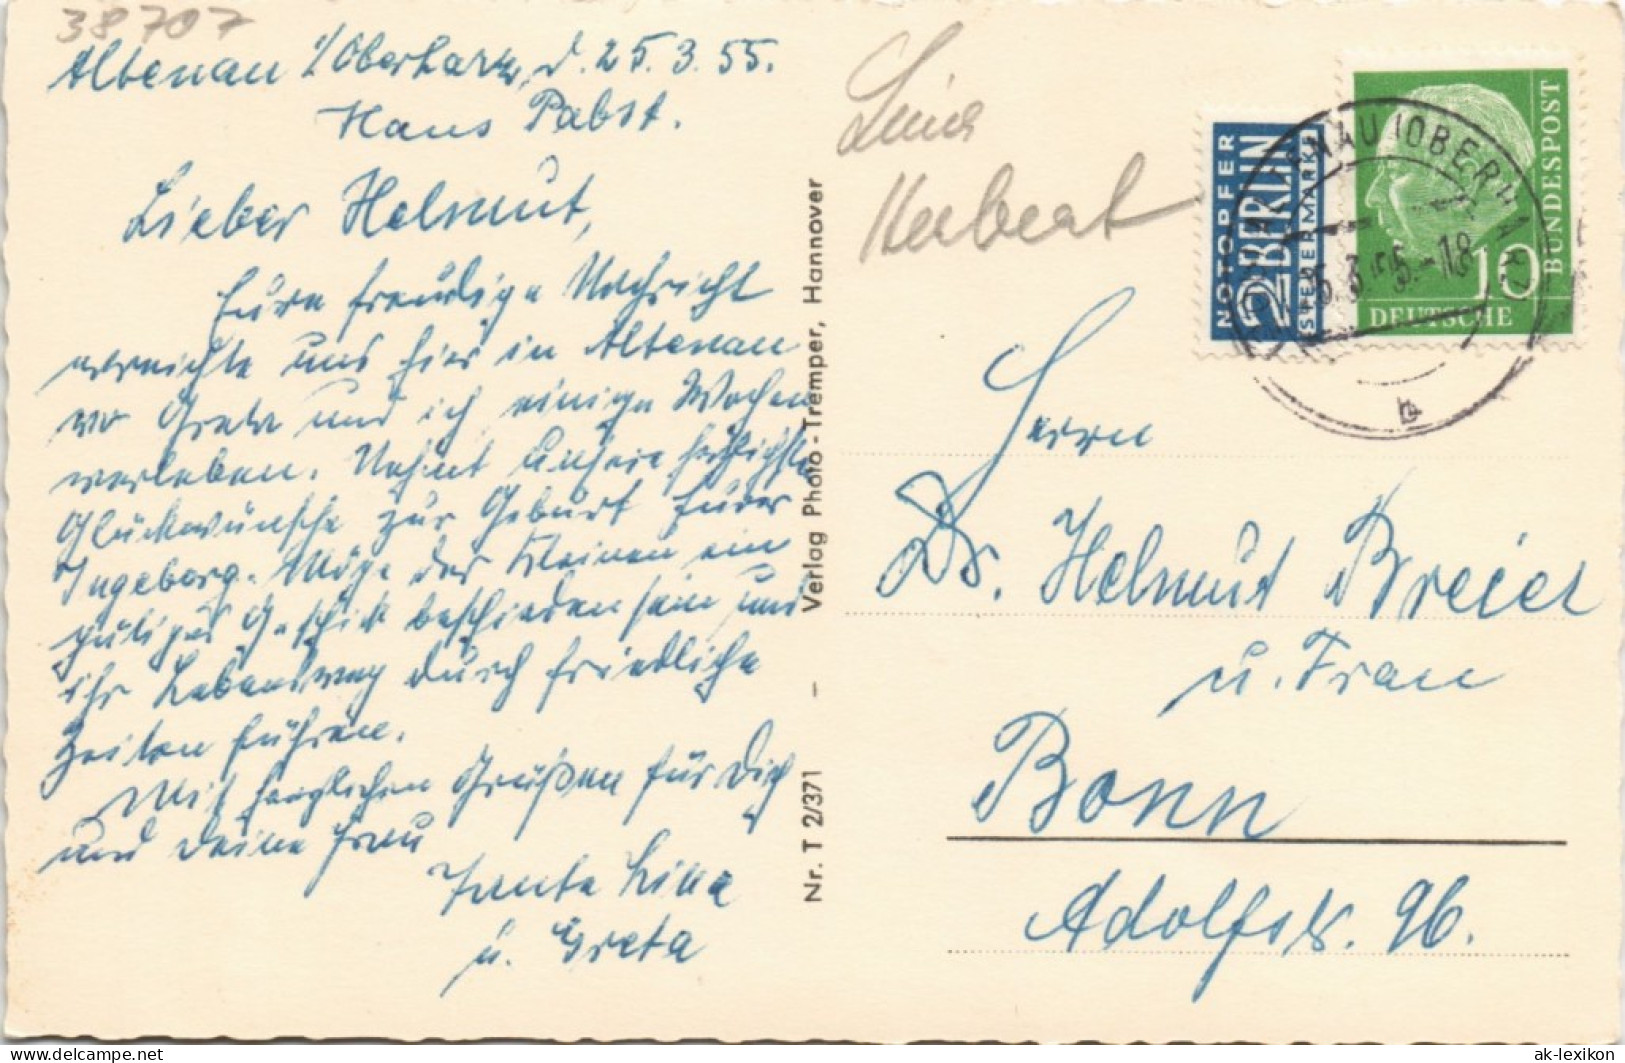 38707
Altenau i/Oberharz, d. 25.3.55.
Haus Pabst.
Lieber Helmut,
Eure freudige Nachricht
erreichte uns hier in Altenau
wo Grete und ich einige Wochen
verleben. Nehmt unsere herzlichste
Glückwünsche zur Geburt Eurer
Ingeborg. Möge der Kleinen ein
gütiges Geschick beschieden sein und
ihr Lebensweg durch friedliche
Zeiten führen.
Mit herzlichen Grüßen für Dich
und Deine Frau
Tante Lina
u. Greta
Nr. T 2/371 – Verlag Photo-Tremper, Hannover
Herbert
NOTOPFER
2 BERLIN
STEUERMARKE
10
DEUTSCHE
BUNDESPOST
ALTENAU (OBERHARZ)
25.3.55.-18
b
Herrn
Dr. Helmut Breier
u. Frau
Bonn
Adolfstr. 96.
ak-lexikon.com